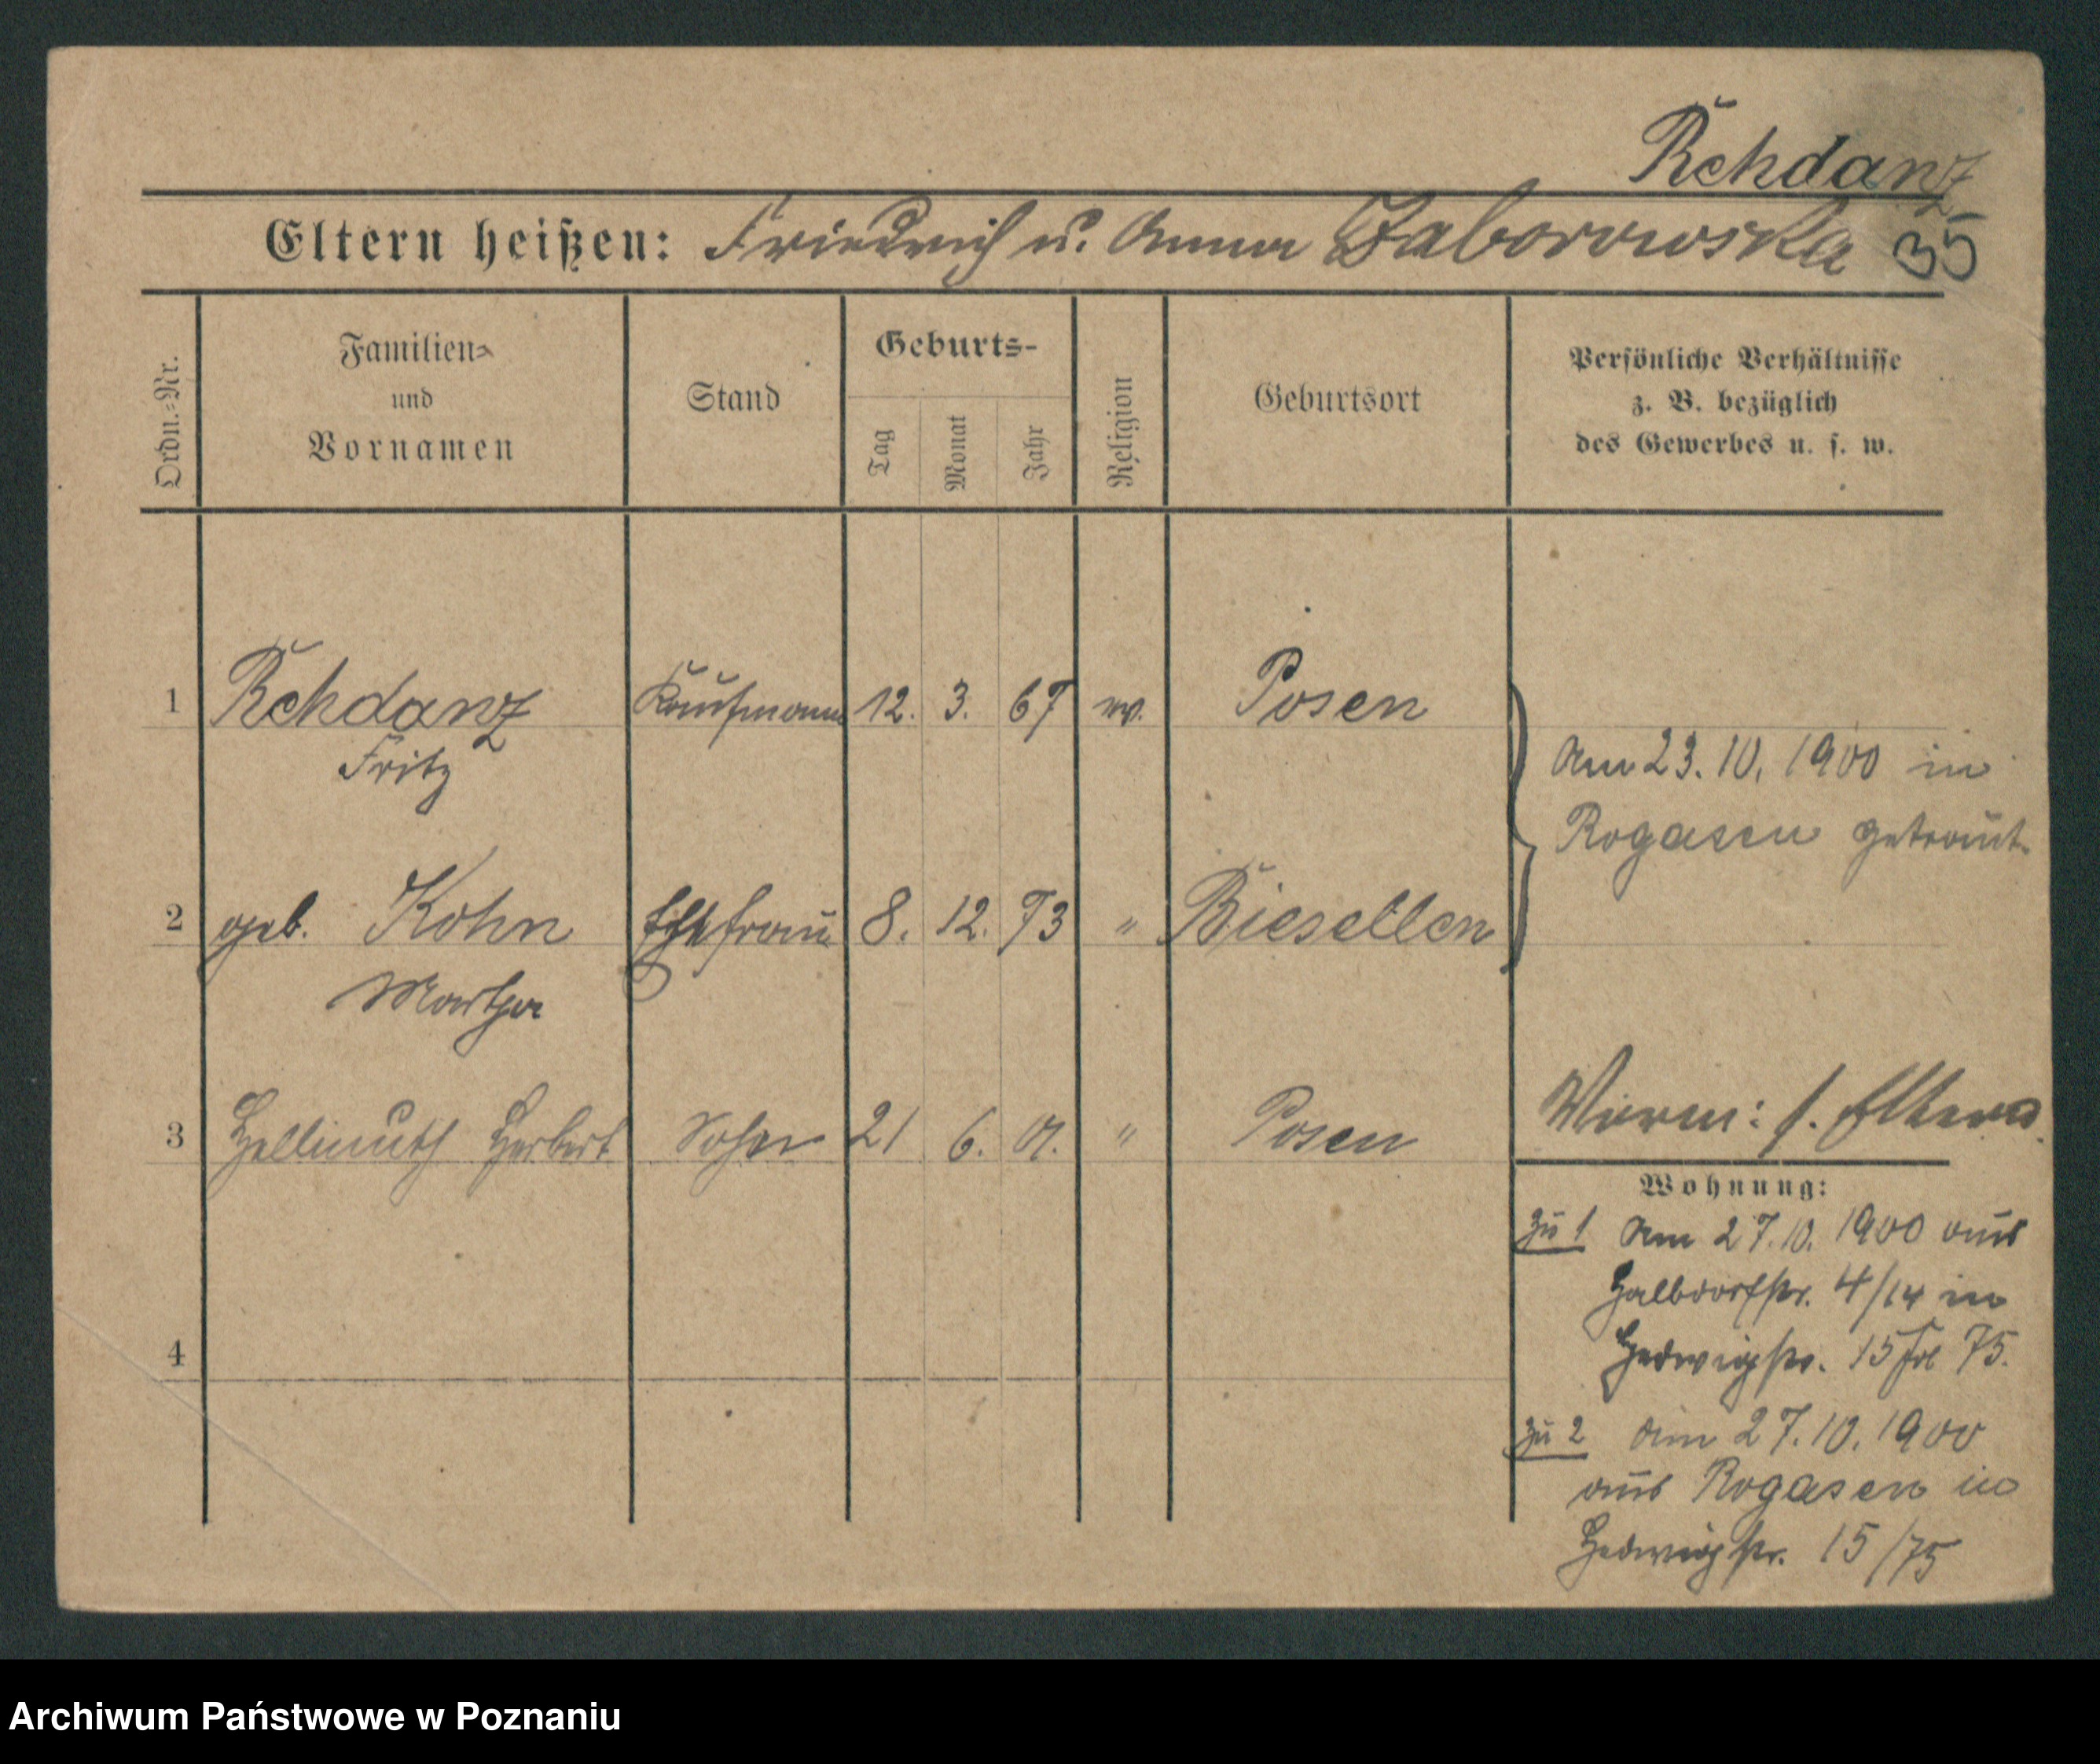 Rehdanz
Eltern heißen: Friedrich u. Anna Zaborowska
35
Ordn.-Nr.
Familien-
und
Vornamen
Stand
Geburts-
Tag
Monat
Jahr
Religion
Geburtsort
Persönliche Verhältnisse
z. B. bezüglich
des Gewerbes u. s. w.
1 Rehdanz Kaufmann 12. 3. 67 ev. Posen
Fritz
Am 23. 10. 1900 in
Rogasen getraut.
2 geb. Kohn Ehefrau 8. 12. 73 " Biesellen
Martha
3 Hellmuth Herbert Sohn 21 6. 01. " Posen
: s. Eltern.
4
Wohnung:
zu 1 Am 27. 10. 1900 aus
Halbdorfstr. 4/14 in
Hedwigstr. 15 75.
zu 2 Am 27. 10. 1900
aus Rogasen in
Hedwigstr. 15/75
Archiwum Państwowe w Poznaniu